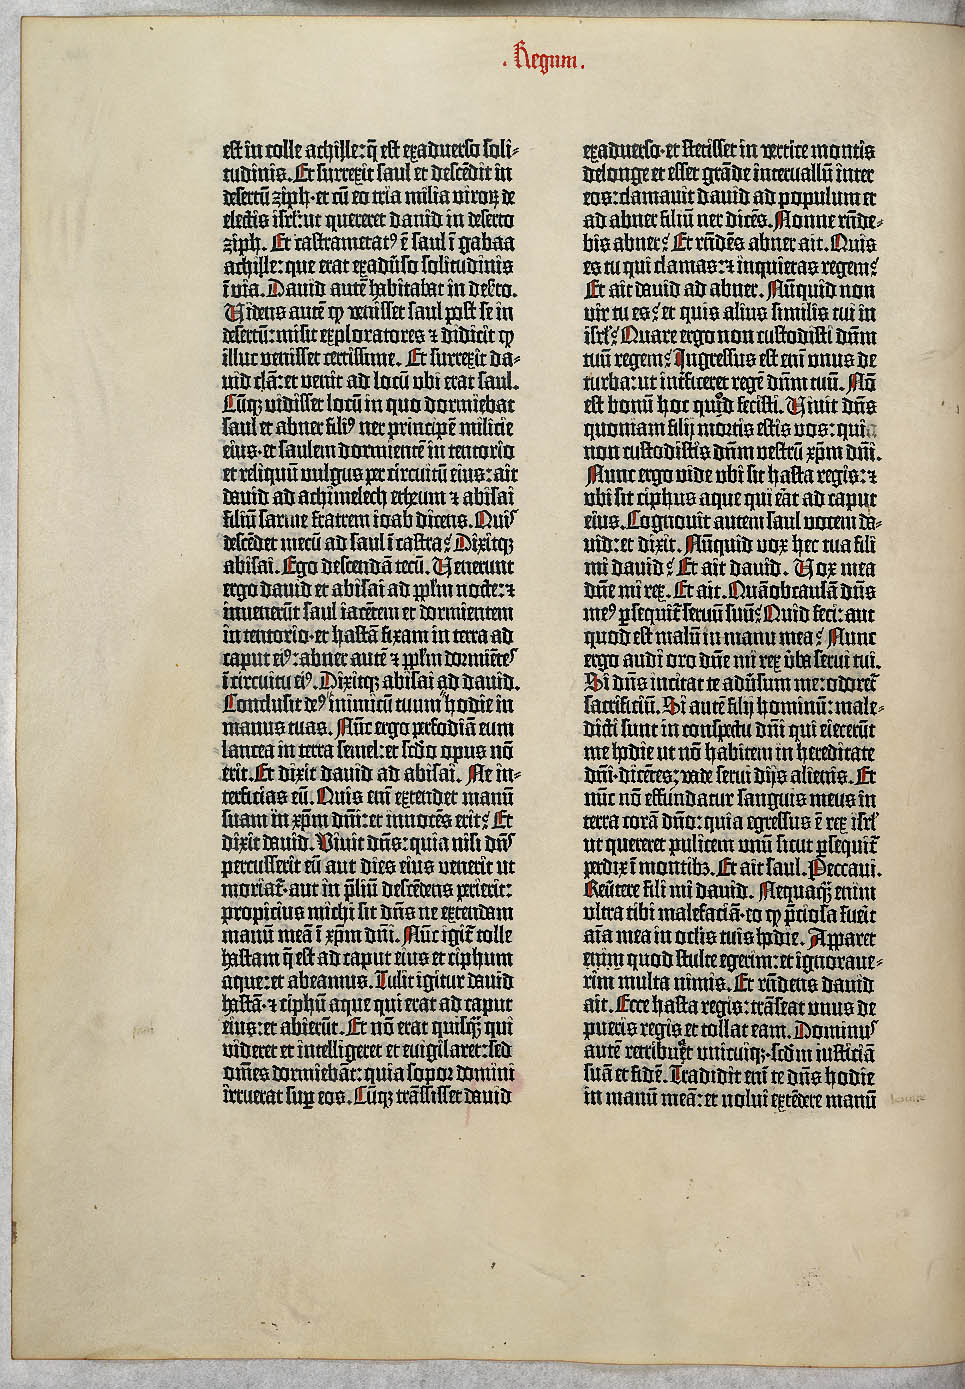 . Regum .
est in colle achille: q̄ est exaduerso soli-
tudinis. Et surrexit saul et descēdit in
desertū ziph·et cū eo tria milia viroꝝ de
electis isrl': ut quereret dauid in deserto
ziph. Et castrametatꝰ ē saul ī gabaa
achille: que erat exadūso solitudinis
ī via. Dauid autē habitabat in deẜto.
Videns autē ꝙ venisset saul post se in
desertū: misit exploratores ⁊ didicit ꝙ
illuc venisset certissime. Et surrexit da-
uid clā: et venit ad locū vbi erat saul.
Cūqꝫ vidisset locū in quo dormiebat
saul et abner filiꝰ ner princeps milicie
eius·et saulem dormientē in tentorio
et reliquū vulgus per circuitū eius: ait
dauid ad achimelech etheum ⁊ abisai
filiū saruie fratrem ioab dicens. Quis
descēdet mecū ad saul ī castra? Dixitqꝫ
abisai. Ego descendā tecū. Venerunt
ergo dauid et abisai ad pplm nocte: ⁊
inuenerūt saul iacētem et dormientem
in tentorio·et hastā fixam in terra ad
caput eiꝰ: abner autē ⁊ pplm dormiētes
ī circuitu eiꝰ. Dixitqꝫ abisai ad dauid.
Conclusit deꝰ inimicū tuum hodie in
manus tuas. Nūc ergo perfodiā eum
lancea in terra semel: et scdo opus nō
erit. Et dixit dauid ad abisai. Ne in-
terficias eū. Quis eni extendet manū
suam in xpm dñi: et innocēs erit? Et
dixit dauid. Viuit dñs: quia nisi dñs
percusserit eū aut dies eius venerit ut
moriat᷑·aut in p̄liū descēdens perierit:
propicius michi sit dñs ne extendam
manū meā ī xpm dñi. Nūc igit᷑ tolle
hastam q̄ est ad caput eius et ciphum
aque: et abeamus. Tulit igitur dauid
hastā·⁊ ciphū aque qui erat ad caput
eius: et abierūt. Et nō erat quisqꝫ qui
videret et intelligeret et euigilaret: sed
om̄es dormiebāt: quia sopor domini
irruerat suꝑ eos. Cūqꝫ trāssisset dauid
exaduerso·et stetisset in vertice montis
delonge et esset grāde interuallū inter
eos: clamauit dauid ad populum et
ad abner filiū ner dicēs. Nonne rñde-
bis abner? Et rñdēs abner ait. Quis
es tu qui clamas: ⁊ inquietas regem?
Et ait dauid ad abner. Nūquid non
vir tu es? et quis alius similis tui in
isrl'? Quare ergo non custodisti dñm
tuū regem? Ingressus est eni vnus de
turba: ut intficeret regē dñm tuū. Nō
est bonū hoc quod fecisti. Viuit dñs
quoniam filij mortis estis vos: quia
non custodistis dñm vestrū xpm dñi.
Nunc ergo vide vbi sit hasta regis: ⁊
vbi sit ciphus aque qui erat ad caput
eius. Cognouit autem saul vocem da-
uid: et dixit. Nūquid vox hec tua fili
mi dauid? Et ait dauid. Vox mea
dñe mi rex. Et ait. Quā ob causā dñs
meꝰ ꝑsequit᷑ seruū suū? Quid feci: aut
quod est malū in manu mea? Nunc
ergo audi oro dñe mi rex v̄ba serui tui.
Si dñs incitat te adūsum me: odoret᷑
sacrificiū. Si autē filij hominū: male-
dicti sunt in conspectu dñi qui eiecerūt
me hodie ut nō habitem in hereditate
dñi·dicētes: vade serui dijs alienis. Et
nūc nō effundatur sanguis meus in
terra corā dño: quia egressus ē rex isrl'
ut quereret pulicem vnū sicut ꝑsequit᷑
perdix ī montibꝫ. Et ait saul. Peccaui.
Reūtere fili mi dauid. Nequaqꝫ enim
vltra tibi malefaciā·eo ꝙ p̄ciosa fuerit
aīa mea in oclis tuis hodie. Apparet
enim quod stulte egerim: et ignoraue-
rim multa nimis. Et rñdens dauid
ait. Ecce hasta regis: trāseat vnus de
pueris regis et tollat eam. Dominus
autē retribuet vnicuiqꝫ·scdm iusticiā
suā et fidē. Tradidit eni te dñs hodie
in manū meā: et nolui extēdere manū